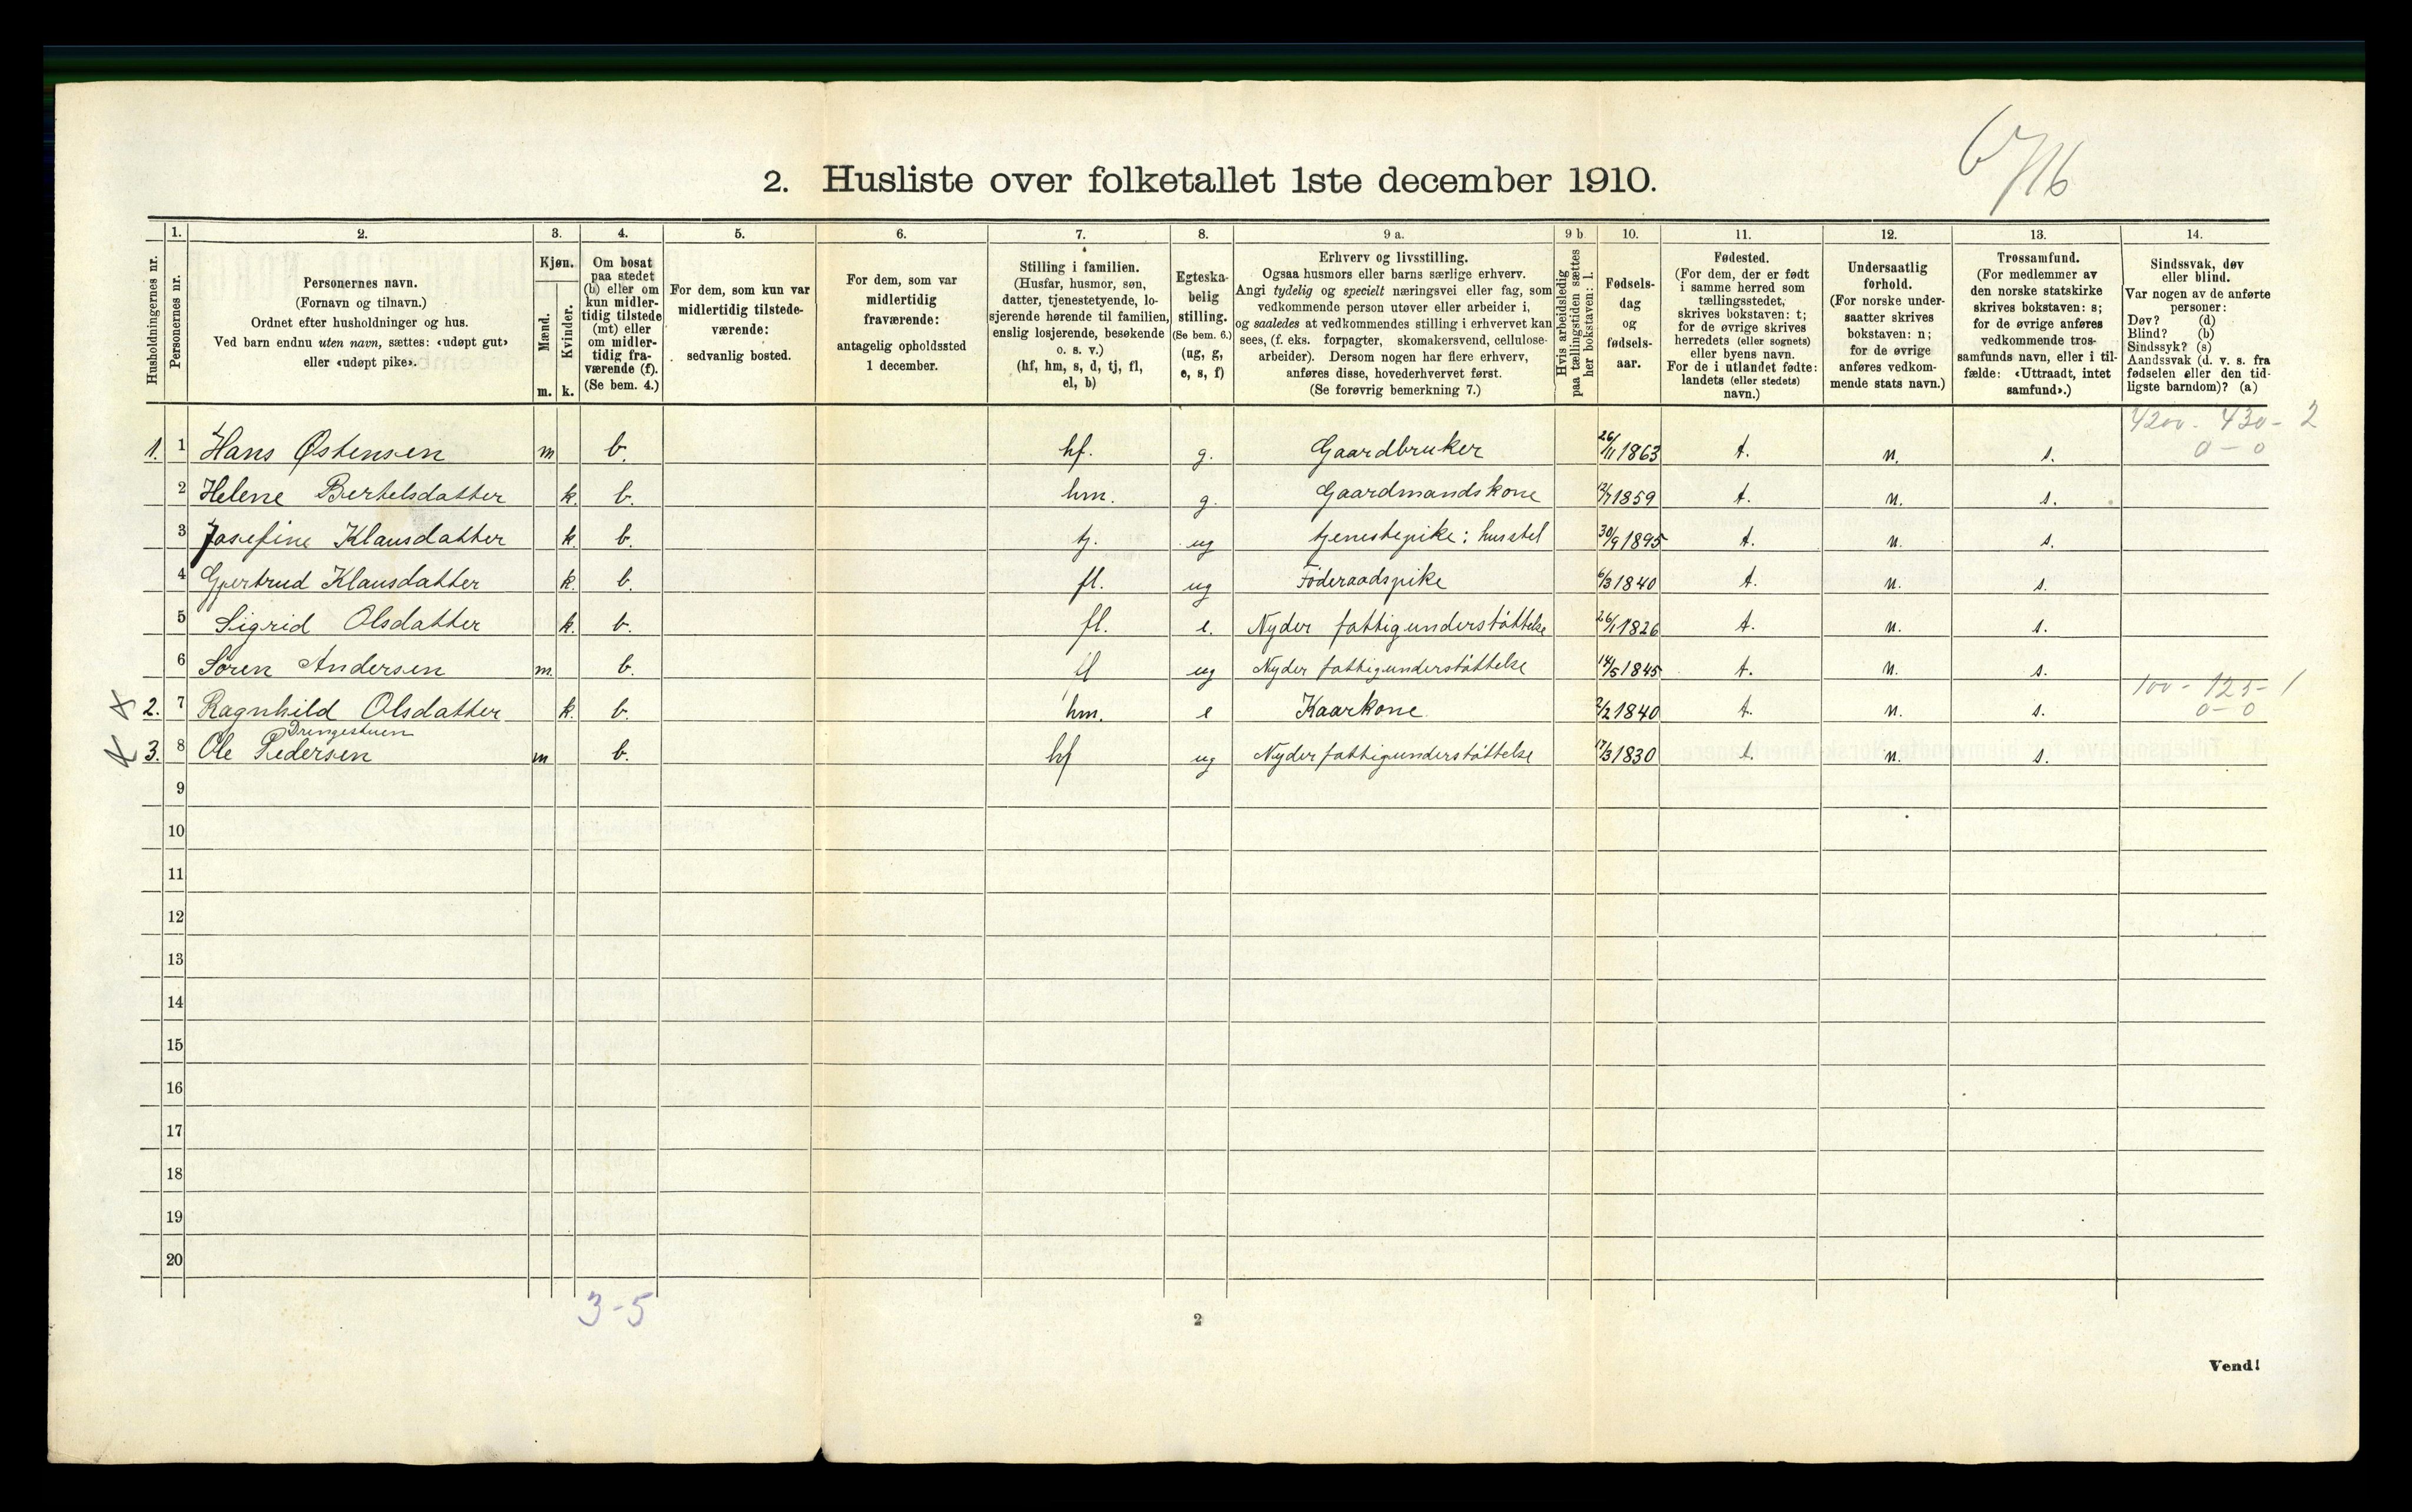 6/16
2. Husliste over folketallet 1ste december 1910.
Husholdningernes nr.
1. Personernes nr.
2. Personernes navn.
(Fornavn og tilnavn.)
Ordnet efter husholdninger og hus.
Ved barn endnu uten navn, sættes: «udøpt gut»
eller «udøpt pike».
3. Kjøn.
Mænd. m.
Kvinder. k.
4. Om bosat
paa stedet
(b) eller om
kun midler-
tidig tilstede
(mt) eller
om midler-
tidig fra-
værende (f).
(Se bem. 4.)
5. For dem, som kun var
midlertidig tilstede-
værende:
sedvanlig bosted.
6. For dem, som var
midlertidig
fraværende:
antagelig opholdssted
1 december.
7. Stilling i familien.
(Husfar, husmor, søn,
datter, tjenestetyende, lo-
sjerende hørende til familien,
enslig losjerende, besøkende
o. s. v.)
(hf, hm, s, d, tj, fl,
el, b)
8. Egteska-
belig
stilling.
(Se bem. 6.)
(ug, g,
e, s, f)
9 a. Erhverv og livsstilling.
Ogsaa husmors eller barns særlige erhverv.
Angi tydelig og specielt næringsvei eller fag, som
vedkommende person utøver eller arbeider i,
og saaledes at vedkommendes stilling i erhvervet kan
sees, (f. eks. forpagter, skomakersvend, cellulose-
arbeider). Dersom nogen har flere erhverv,
anføres disse, hovederhvervet først.
(Se forøvrig bemerkning 7.)
9 b Hvis arbeidsledig
paa tællingstiden sættes
her bokstaven: l.
10. Fødsels-
dag
og
fødsels-
aar.
11. Fødested.
(For dem, der er født
i samme herred som
tællingsstedet,
skrives bokstaven: t;
for de øvrige skrives
herredets (eller sognets)
eller byens navn.
For de i utlandet fødte:
landets (eller stedets)
navn.)
12. Undersaatlig
forhold.
(For norske under-
saatter skrives
bokstaven: n;
for de øvrige
anføres vedkom-
mende stats navn.)
13. Trossamfund.
(For medlemmer av
den norske statskirke
skrives bokstaven: s;
for de øvrige anføres
vedkommende tros-
samfunds navn, eller i til-
fælde: «Uttraadt, intet
samfund».)
14. Sindssvak, døv
eller blind.
Var nogen av de anførte
personer:
Døv? (d)
Blind? (b)
Sindssyk? (s)
Aandssvak (d. v. s. fra
fødselen eller den tid-
ligste barndom)? (a)
4200 - 430 - 2
1. 1 Hans Østensen m b. hf. g. Gaardbruker 26/11 1863 t. n. s. 0 - 0
2 Helene Bertelsdatter k. b. hm. g. Gaardmandskone 12/7 1859 t. n. s.
3 Josefine Klausdatter k. b. tj. ug tjenestepike: husstel 30/9 1895 t. n. s.
4 Gjertrud Klausdatter k. b. fl. ug Föderaadspike 6/3 1840 t. n. s.
5 Sigrid Olsdatter k. b. fl. e. Nyder fattigunderstöttelse 26/1 1826 t. n. s.
6 Sören Andersen m. b. fl ug Nyder fattigunderstöttelse 14/5 1845 t. n. s.
100 - 125 - 1
2. 7 Ragnhild Olsdatter k. b. hm. e Kaarkone 2/2 1840 t. n. s. 0 - 0
Drengestuen
3. 8 Ole Pedersen m b. hf ug Nyder fattigunderstöttelse 17/3 1830 t. n. s.
9
10
11
12
13
14
15
16
17
18
19
20
3-5
2
Vend!